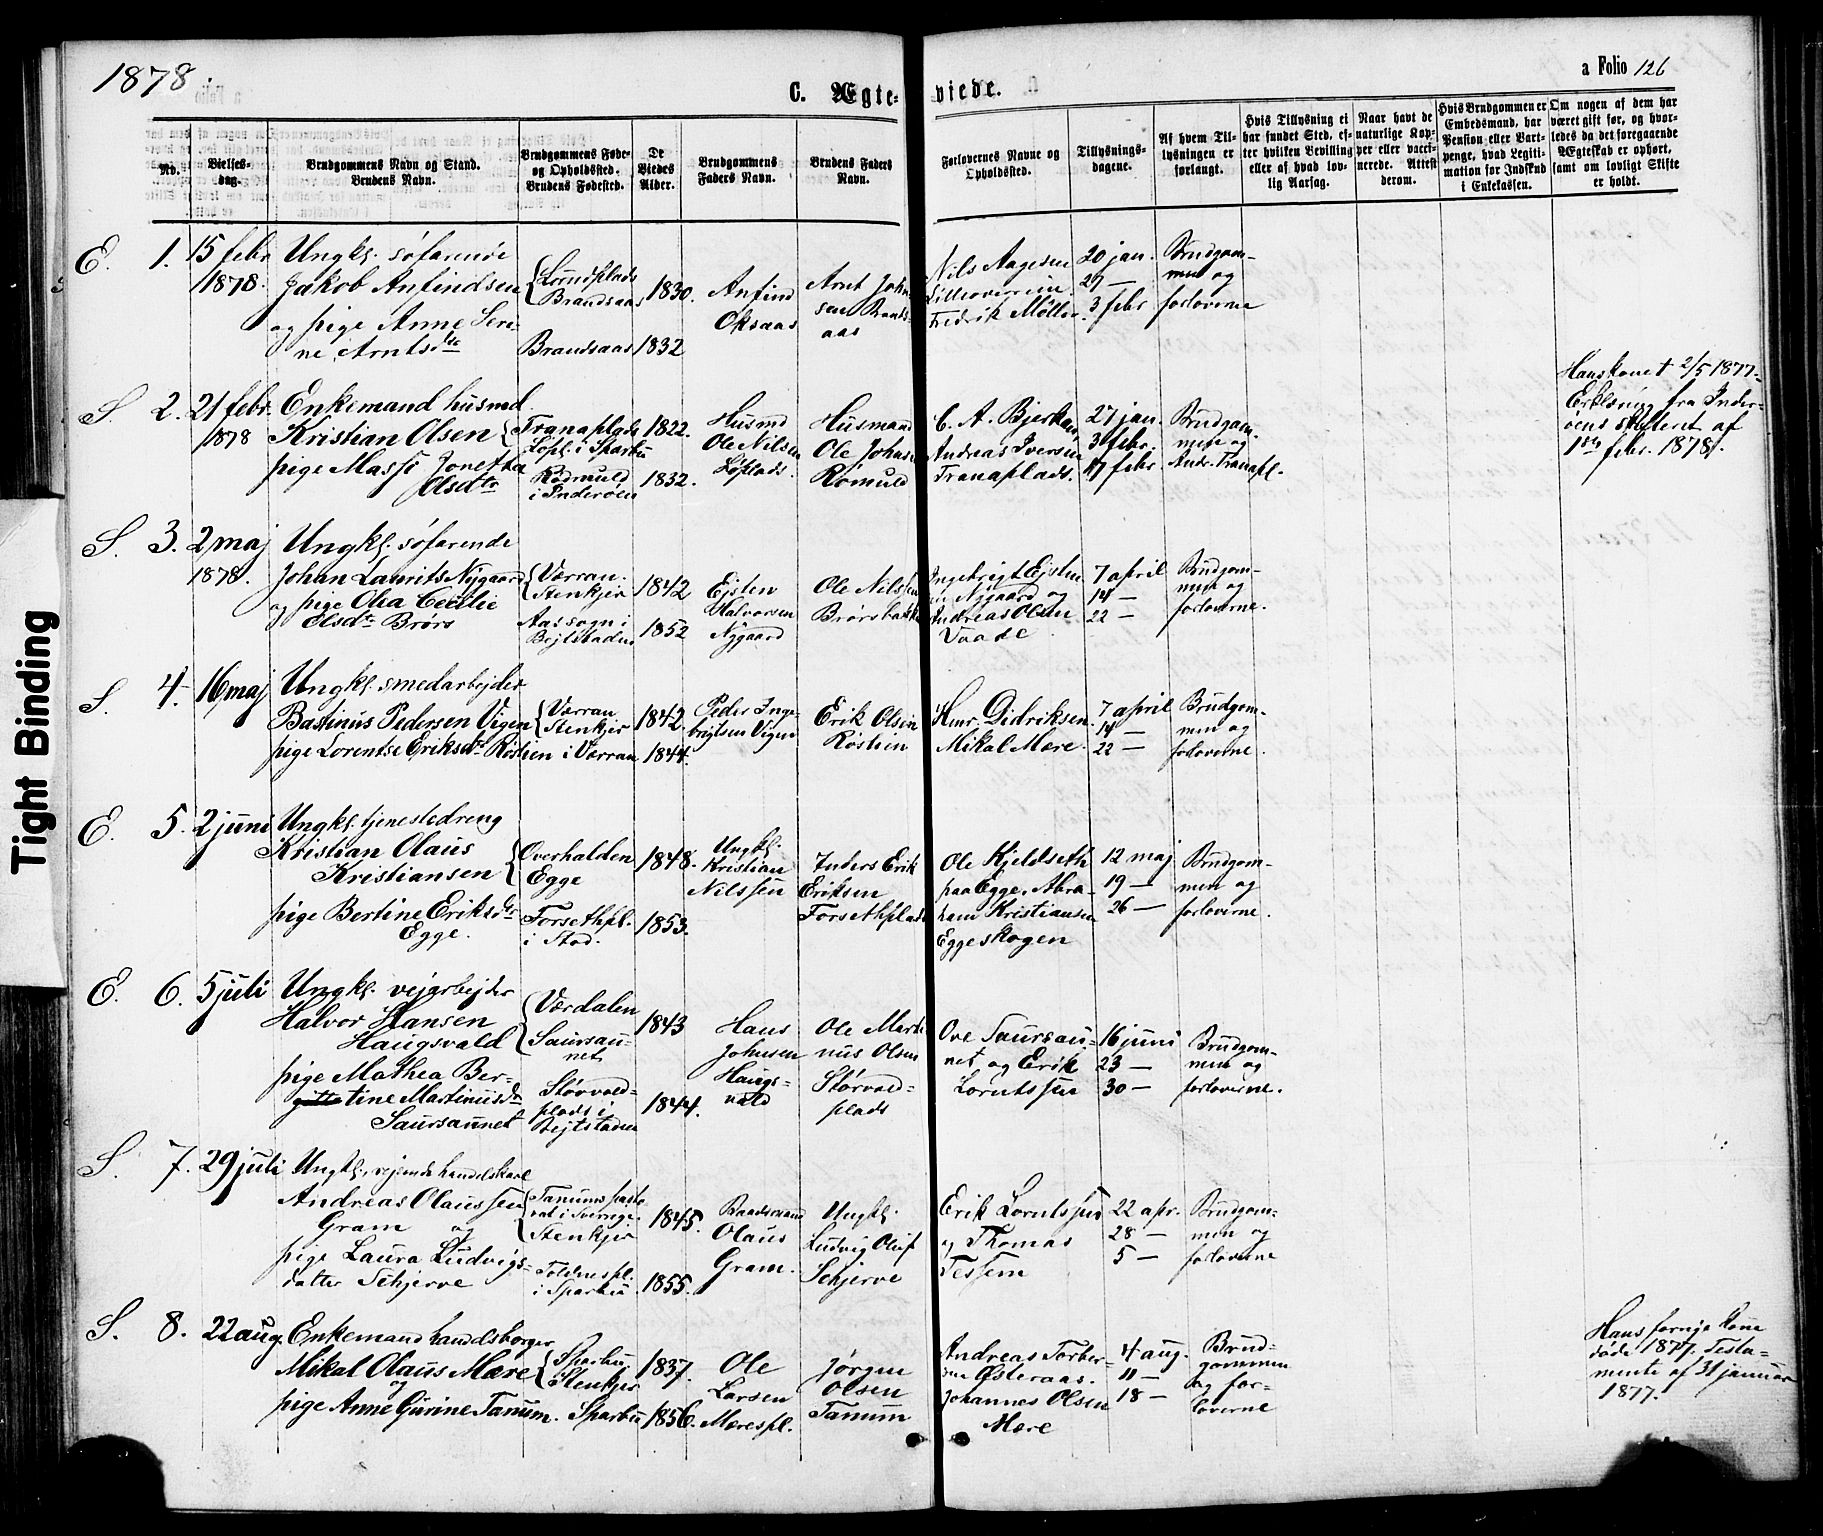 1878
C. Ægte-
viede.
a Folio 126
No.
Vielses-
dag.
Brudgommens Navn og Stand.
Brudens Navn.
Brudgommens Føde-
og Opholdssted.
Brudens Fødested.
De
Viedes
Alder.
Brudgommens
Faders Navn.
Brudens Faders
Navn.
Forlovernes Navne og
Opholdssted.
Tillysnings-
dagene.
Af hvem Til-
lysningen er
forlangt.
Hvis Tillysning ei
har fundet Sted, ef-
ter hvilken Bevilling
eller af hvad lov-
lig Aarsag.
Naar havt de
naturlige Kop-
per eller vacci-
nerede. Attest
derom.
Hvis Brudgommen er
Embedsmand, har
Pension eller Vart-
penge, hvad Legiti-
mation for Indskud
i Enkekassen.
Om nogen af dem har
været gift før, og hvor-
ledes da det foregaaende
Ægteskab er ophørt,
samt om lovligt Skifte
er holdt.
E. 1. 15 febr
1878.
Ungkl. søfarende
Jakob Anfindsen
og pige Anne Sere-
ne Arntsdtr
Lundsplads
Brandsaas
Brandsaas
1830.
1832
Anfind
Oksaas
Arnt John
sen Brands-
aas
Nils Aagesen
Lilleoverein
Fredrik Møller
20 jan.
27 —
3 febr
Brudgom-
men og
forloverne
S. 2. 21 febr.
1878
Enkemand husmd
Kristian Olsen
pige Massi Jonetha
Olsdtr
Tranaplads
Løpl. i Sparbu
Rødmuld
i Inderøen
1822.
1832.
Husmd
Ole Nilsen
Løplads.
Husmand
Ole Johns
Rømuld
C. A. Bjerkan
Andreas Iversen
Tranaplads.
27 jan.
3 febr.
17 febr
Brudgom-
men og
Andr. Tranapl.
Hans kone † 2/5 1877.
Erklæring fra Inder-
øens skifteret af
1ste febr. 1878.
S. 3. 2 maj
1878.
Ungkl. søfarende
Johan Laurits Nygaard
og pige Olia Cecilie
Olsdtr Brørs
Værran.
Stenkjer
Aas sogn i
Bejtstaden
1842
1852
Ejsten
Halvorsen
Nygaard
Ole Nilssen
Brørsbakk
Ingebrigt Ejsten
sen Nygaard og
Andreas Olsen
Vaade
7 april
14 —
22 —
Brudgom-
men og
forloverne.
S. 4. 16 maj
Ungkl. smedarbejder
Bastinus Pedersen Vigen
pige Lorentse Eriksdtr Røstien i Værran
Værran
Stenkjer
1842.
1844.
Peder Inge-
brigtsen Vigen
Erik Olsen
Røstien
Henr. Didriksen.
Mikal Mære.
7 april
14 —
22 —
Brudgom-
men og
forloverne.
E. 5. 2 juni
Ungkl. tjenestedreng
Kristian Olaus
Kristiansen
pige Bertine Eriksdtr
Egge.
Overhalden
Egge
Forsethpl.
i Stod.
1848.
1853.
Ungkl.
Kristian
Nilssen
Inders Erik
Eriksen
Forsethplads
Ole Kjeldseth
paa Egge. Abra-
ham Kristiansen
Eggeskogen
12 maj
19 —
26 —
Brudgom-
men og
forloverne.
E. 6. 5 juli
Ungkl. vejarbejder
Halvor Hansen
Haugsvald
pige Mathea Ber-
gitte tine Martinusdtr
Saursaunet
Værdalen
Saursau-
net
Størvold-
plads i
Bejtstaden
1843
1844.
Hans
Johnsen
Haugs-
vald
Ole Marti
nus Olsen
Størvold-
plads
Ove Saursau-
net og Erik
Lorntssen
16 juni
23 —
30 —
Brudgom-
men og
forloverne.
S. 7. 29 juli
Ungkl. rejsende handelskarl
Andreas Olaussen
Gram og
pige Laura Ludvigs-
datter Schjerve
Tanums pasto-
rat i Sverrige
Stenkjer
Toldnespl.
i Sparbu
1845.
1855.
Baadsmand
Olaus
Gram.
Ungkl.
Ludvig Oluf
Schjerve
Erik Lorntssen
og Thomas
Tessem
22 apr.
28 —
5 —
Brudgom-
men og
forloverne
S. 8. 22 aug.
Enkemand handelsborger
Mikal Olaus Mære
og
pige Anne Gurine Tanum.
Sparbu
Stenkjer
Sparbu
1837.
1856.
Ole
Larsen
Mærespl.
Jørgen
Olsen
Tanum
Andreas Torber-
sen Østeraas.
Johannes Olsen
Mære
4 aug.
11 —
18 —
Brud-
gommen
og for-
loverne
Hans forrige kone
døde 1877. Testa-
mente af 31 januar
1877.
Tight Binding